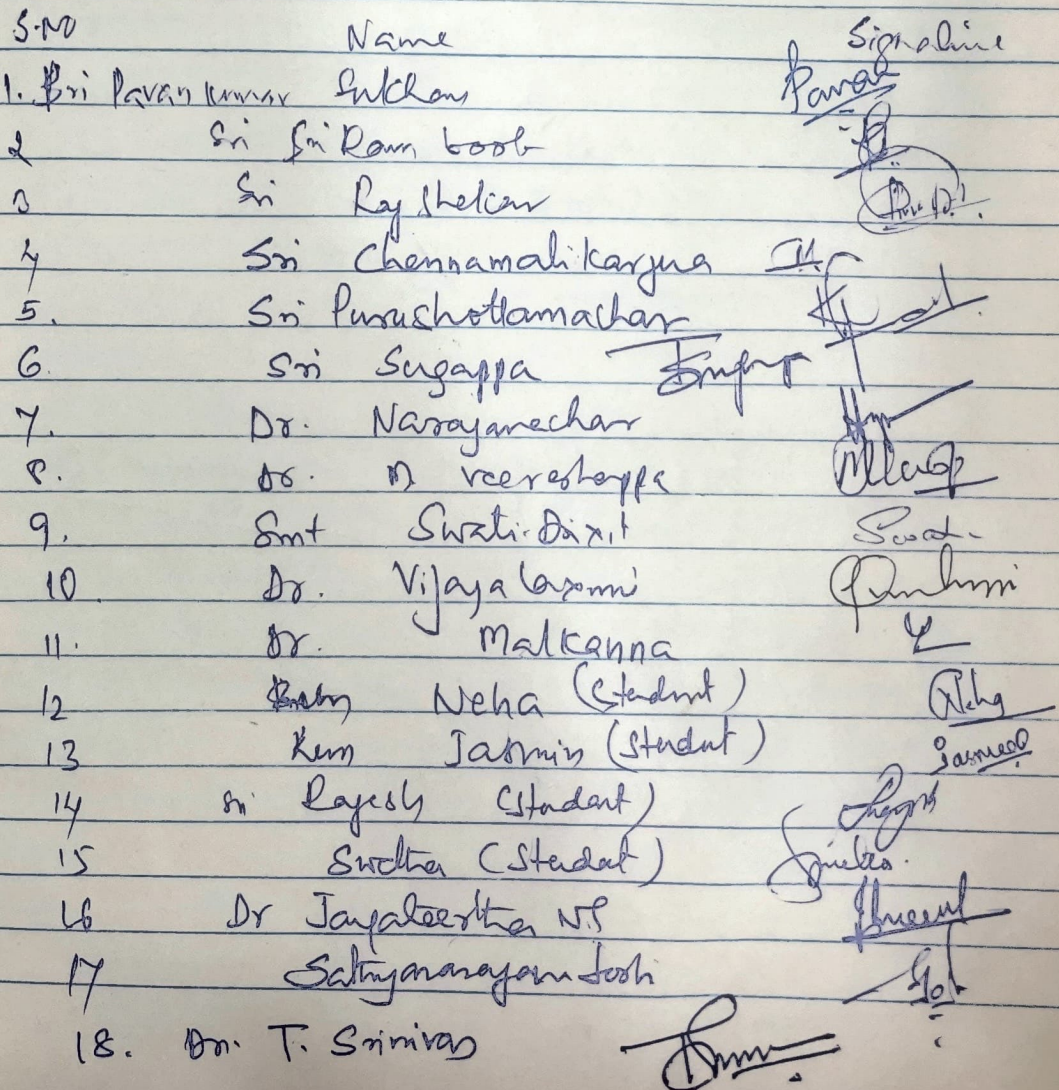 S.NO Name Signature
1. Sri Pavan kumar Sukhani Pavan
2 Sri Sri Ram boob
3 Sri Rajshekar
4 Sri Chennamalikarjua
5. Sri Purushottamachar
6. Sri Sugappa
7. Dr. Narayanachar
8. Dr. M veereshappa
9. Smt Swati Dixit Swati
10. Dr. Vijaya laxmi
11. Dr. Malkanna
12 Neha (Student) Neha
13 Kum Jasmin (Student) Jasmeen
14 Sri Rajesh (Student)
15 Swetha (Student)
16 Dr Jayateertha NS
17 Sathyanarayana Joshi
18. Dr. T. Srinivas